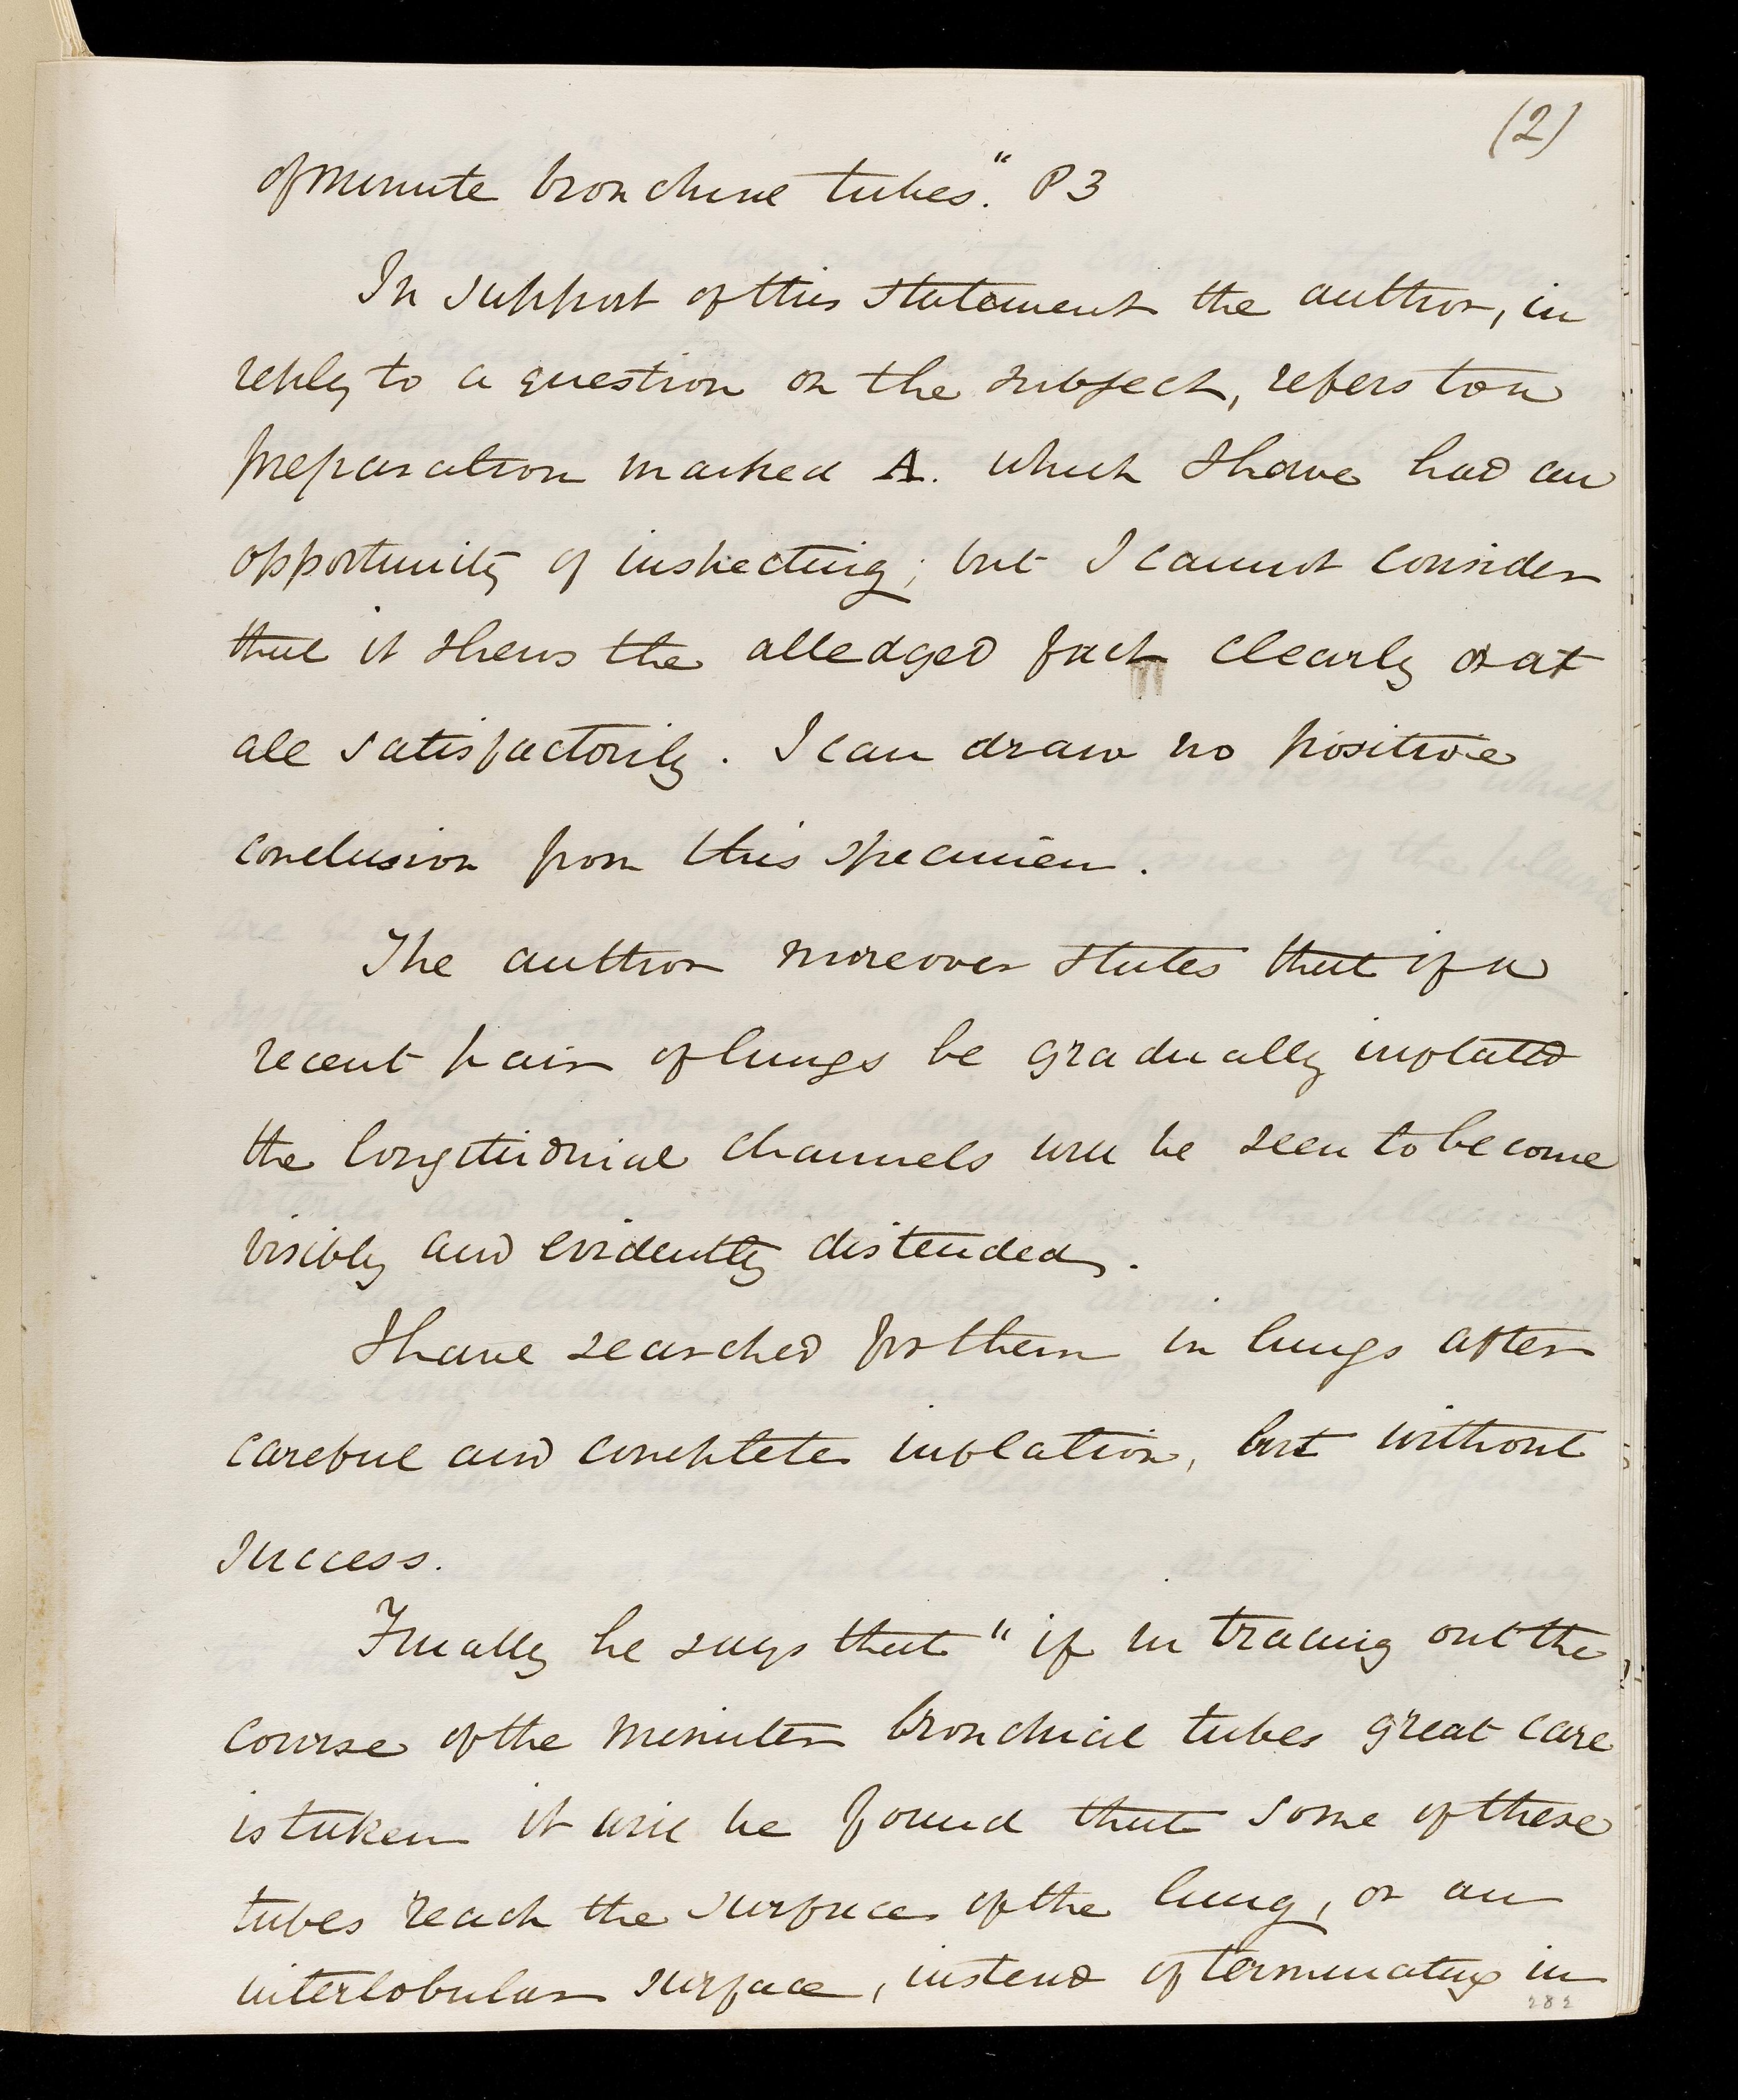 (2)
of minute bronchial tubes." P 3
In support of this statement the author, in
reply to a question on the subject, refers to a
preparation marked A. which I have had an
opportunity of inspecting; but I cannot consider
that it shews the alledged fact clearly or at
all satisfactorily. I can draw no positive
conclusion from this specimen.
The author moreover states that if a
recent pair of lungs be gradually inflated
the longitudinal channels will be seen to become
visibly and evidently distended.
I have searched for them in lungs after
careful and complete inflation, but without
success.
Finally he says that "if in tracing out the
course of the minuter bronchial tubes great care
is taken it will be found that some of these
tubes reach the surface of the lung, or an
interlobular surface, instead of terminating in
282